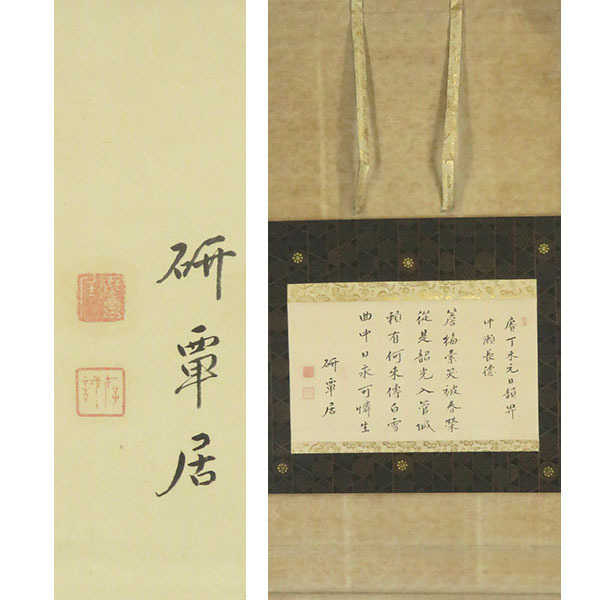 研覃居
賡丁未元日韻畀
中瀬長徳
簷梅索笑被春榮
從是韶光入管城
頼有何来傳白雪
曲中日永可憐生
研覃居